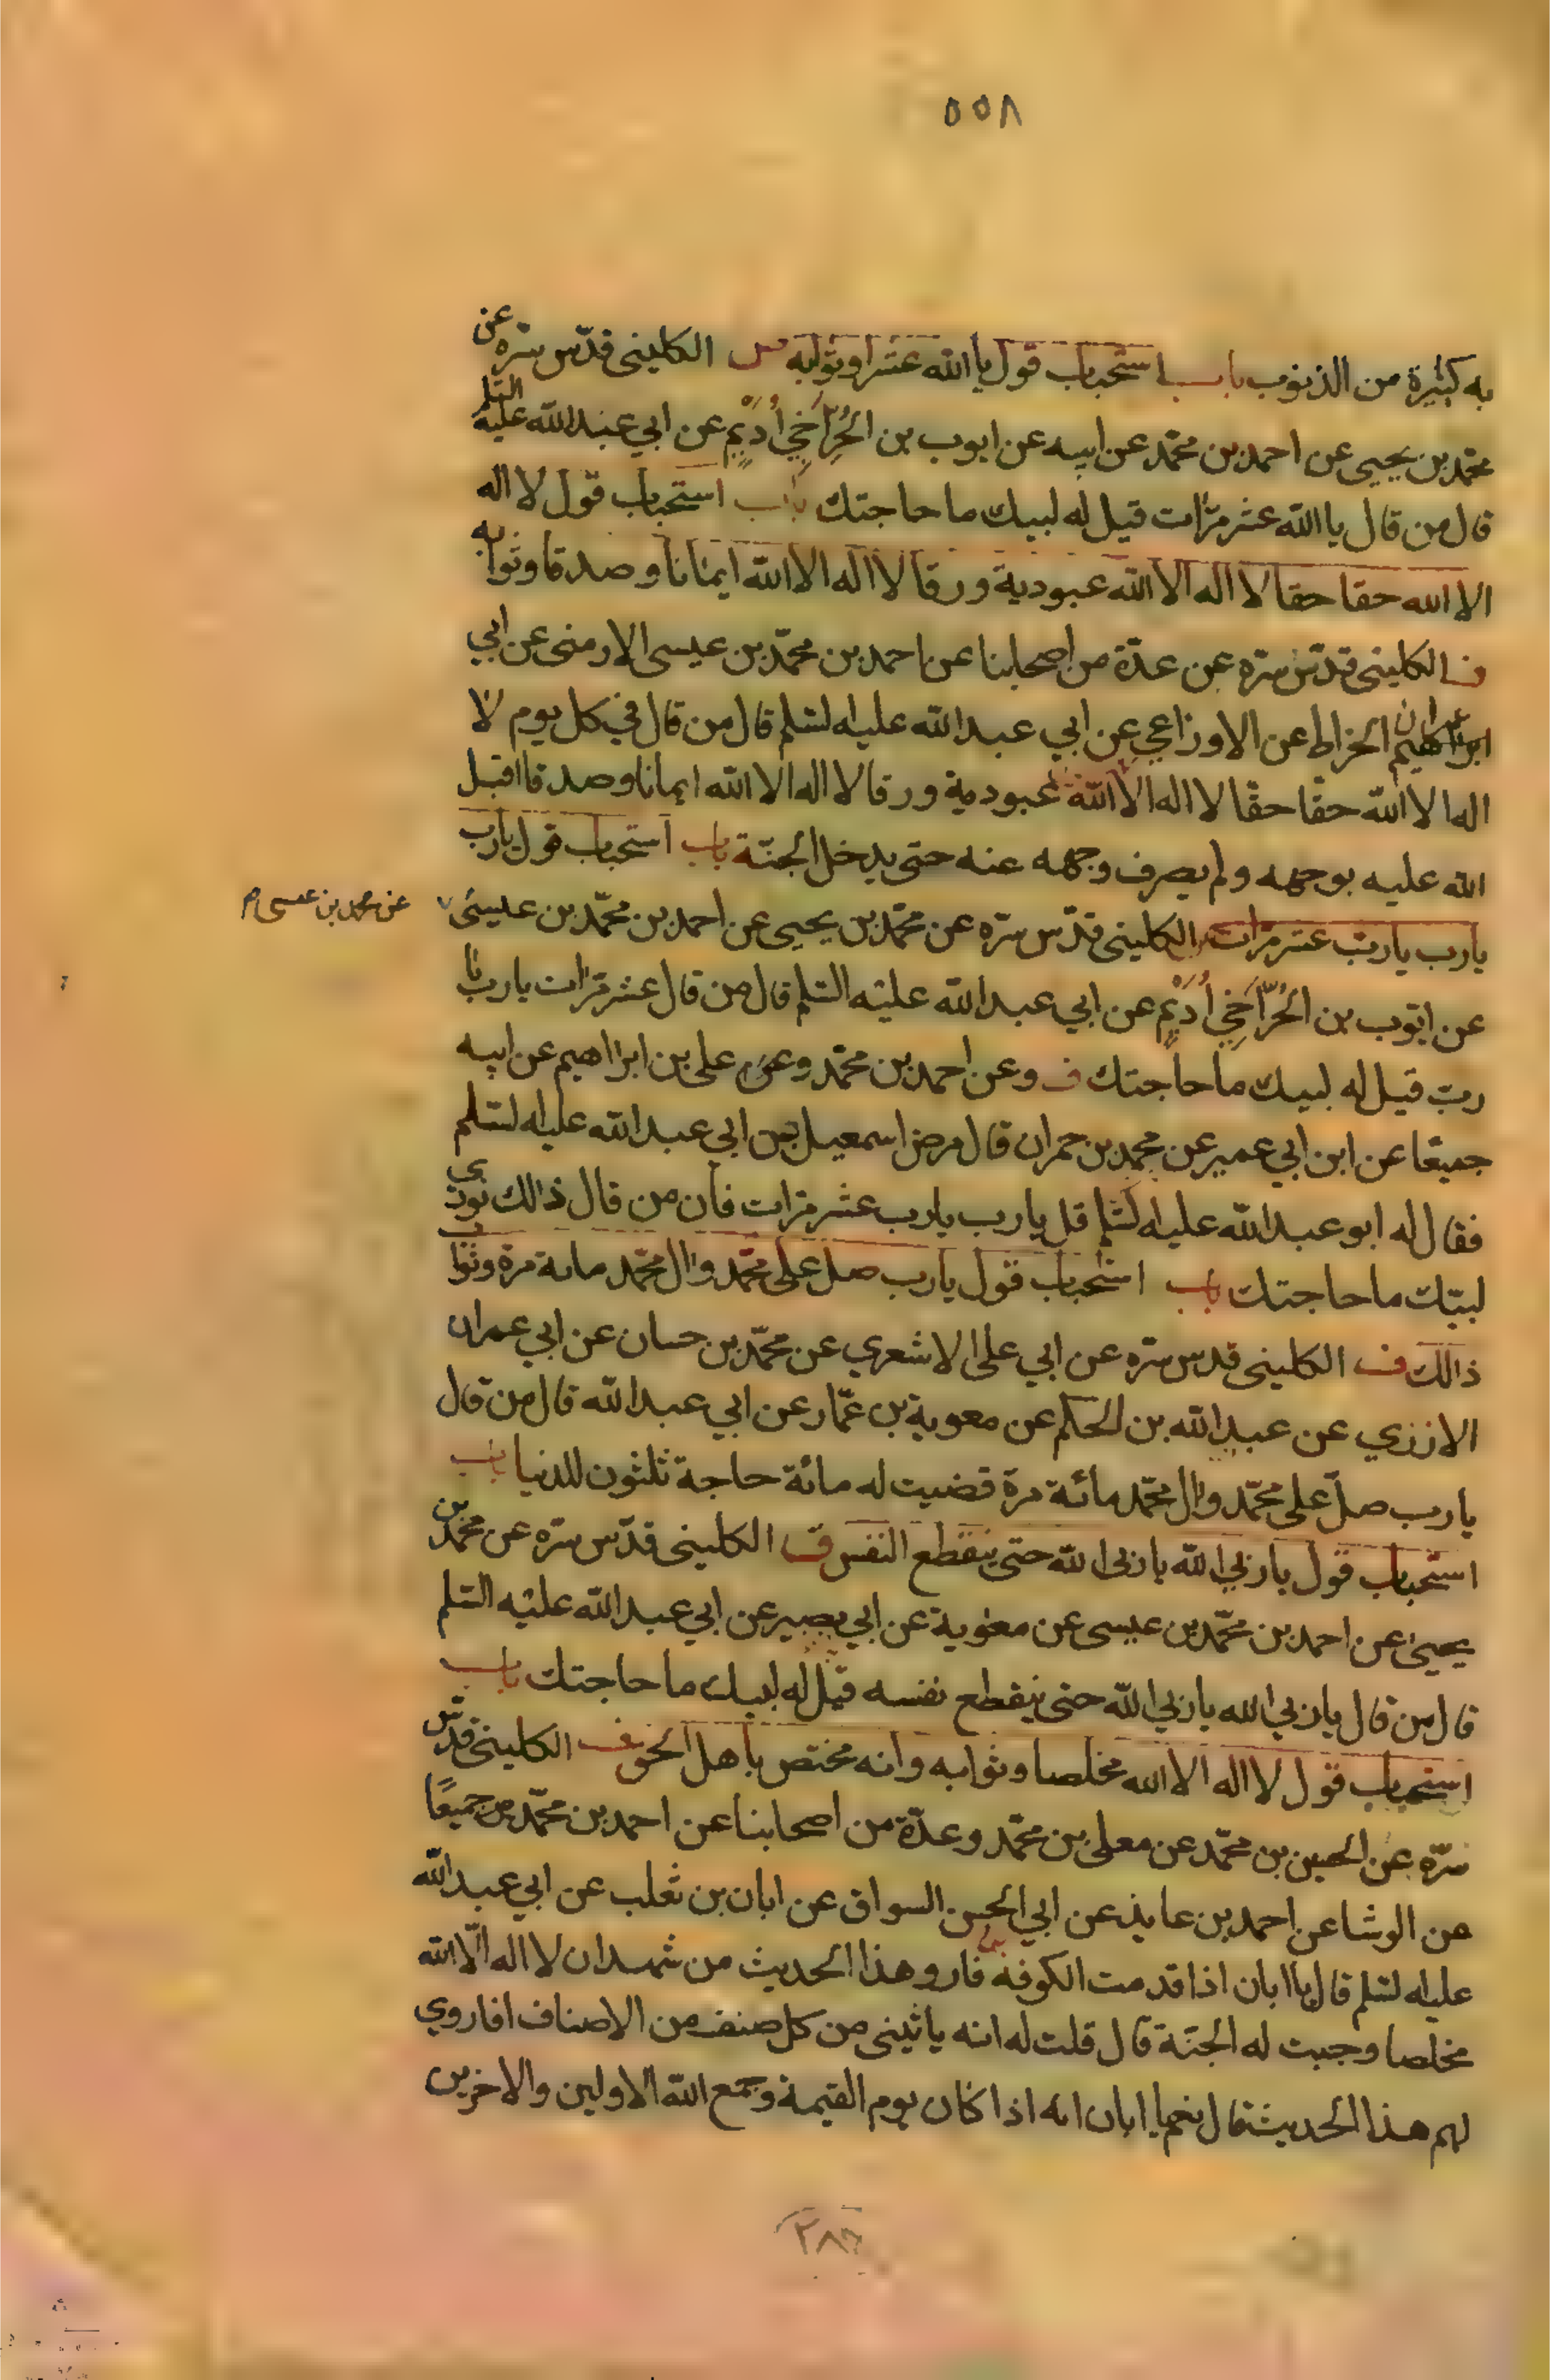 ٥٥٨
به كثيرة من الذنوب باب استحباب قول يا الله عشرا وثوابه الكليني قدّس سرّه عن
محمّد بن يحيى عن احمد بن محمّد عن ابيه عن ايوب بن الحُرِّ أَخي أُدَيْمٍ عن ابي عبد الله عليه السّلم
قال من قال يا الله عشر مرّات قيل له لبيك ما حاجتك باب استحباب قول لا اله
الا الله حقا حقا لا اله الا الله عبودية ورقا لا اله الا الله ايمانا وصدقا وثوابه
ف الكليني قدّس سرّه عن عدّة من اصحابنا عن احمد بن محمّد بن عيسى الارمني عن ابي
عمران الخراط عن الاوزاعي عن ابي عبد الله عليه السّلم قال من قال في كل يوم لا
اله الا الله حقّا حقّا لا اله الا الله عبودية ورقا لا اله الا الله ايمانا وصدقا اقبل
الله عليه بوجهه ولم يصرف وجهه عنه حتى يدخل الجنّة باب استحباب قول يا رب
يا رب يا ربّ عشر مرّات الكليني قدّس سرّه عن محمّد بن يحيى عن احمد بن محمّد بن عيسى
عن محمد بن عيسى م
عن ايّوب بن الحُرِّ أَخِي أُدَيْمٍ عن ابي عبد الله عليه السّلم قال من قال عشر مرّات يا رب يا
ربّ قيل له لبيك ما حاجتك ف وعن احمد بن محمّد وعن علي بن ابراهيم عن ابيه
جميعًا عن ابن ابي عمير عن محمد بن حمران قال مرض اسمعيل بن ابي عبد الله عليه السّلم
فقال له ابو عبد الله عليه السّلم قل يا رب يا رب عشر مرّات فان من قال ذالك نودي
لبيّك ما حاجتك باب استحباب قول يا رب صل على محمّد وال محمّد مائة مرة وثواب
ذالك ف الكليني قدس سرّه عن ابي علي الاشعري عن محمّد بن حسان عن ابي عمران
الازري عن عبد الله بن الحكم عن معوية بن عمّار عن ابي عبد الله قال من قال
يا رب صلّ على محمّد وال محمّد مائة مرة قضيت له مائة حاجة ثلثون للدنيا باب
استحباب قول يا ربي الله يا ربي الله حتى ينقطع النفس ف الكليني قدّس سرّه عن محمّد بن
يحيى عن احمد بن محمّد بن عيسى عن معوية عن ابي بصير عن ابي عبد الله عليه السّلم
قال من قال يا ربي الله يا ربي الله حتى ينقطع نفسه قيل له لبيك ما حاجتك باب
استحباب قول لا اله الا الله مخلصا وثوابه وانه مختص باهل الحق ف الكليني قدّس
سرّه عن الحسين بن محمّد عن معلى بن محمّد وعدّة من اصحابنا عن احمد بن محمّد جميعًا
عن الوشا عن احمد بن عايذ عن ابي الحسن السواق عن ابان بن تغلب عن ابي عبد الله
عليه السّلم قال يا ابان اذا قدمت الكوفة فارو هذا الحديث من شهد ان لا اله الّا الله
مخلصا وجبت له الجنّة قال قلت له انه ياتيني من كل صنف من الاصناف افاروي
لهم هذا الحديث قال نعم يا ابان انه اذا كان يوم القيمة وجمع الله الاولين والاخرين